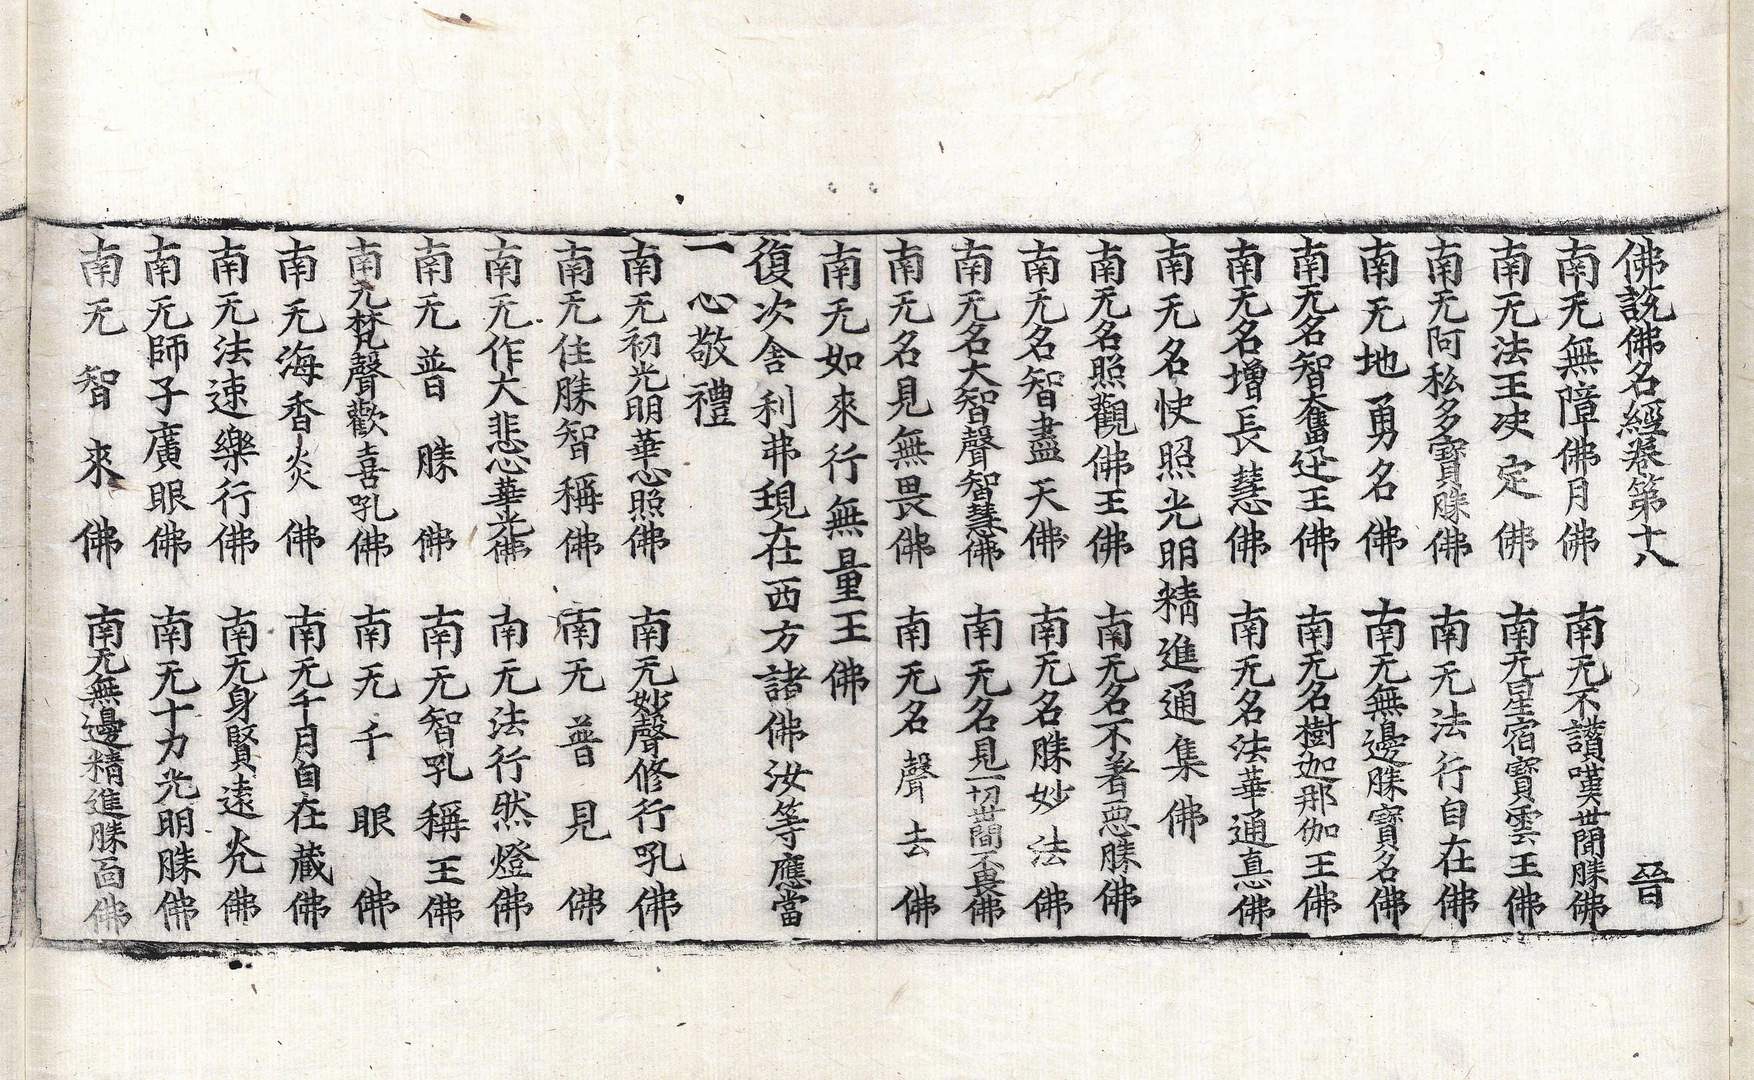 佛說佛名經卷第十八　晉
南无無障佛月佛　南无不讃嘆世間勝佛
南无法王决定佛　南无星宿寶雲王佛
南无阿私多寶勝佛　南无法行自在佛
南无地勇名佛　南无無邊勝寶名佛
南无名智奮迅王佛　南无名樹迦那伽王佛
南无名增長慧佛　南无名法華通真心佛
南无名快照光明精進通集佛
南无名照觀佛王佛　南无名不著惡勝佛
南无名智盡天佛　南无名勝妙法佛
南无名大智聲智慧佛　南无名見一切世間不畏佛
南无名見無畏佛　南无名聲去佛
南无如來行無量王佛
復次舍利弗現在西方諸佛汝等應當
一心敬禮
南无初光明華心照佛　南无妙聲修行吼佛
南无住勝智稱佛　南无普見佛
南无作大悲心華光佛　南无法行然燈佛
南无普勝佛　南无智吼稱王佛
南无梵聲歡喜吼佛　南无千眼佛
南无海香炎佛　南无千月自在藏佛
南无法速樂行佛　南无身賢遠光佛
南无師子廣眼佛　南无十力光明勝佛
南无智來佛　南无無邊精進勝佛